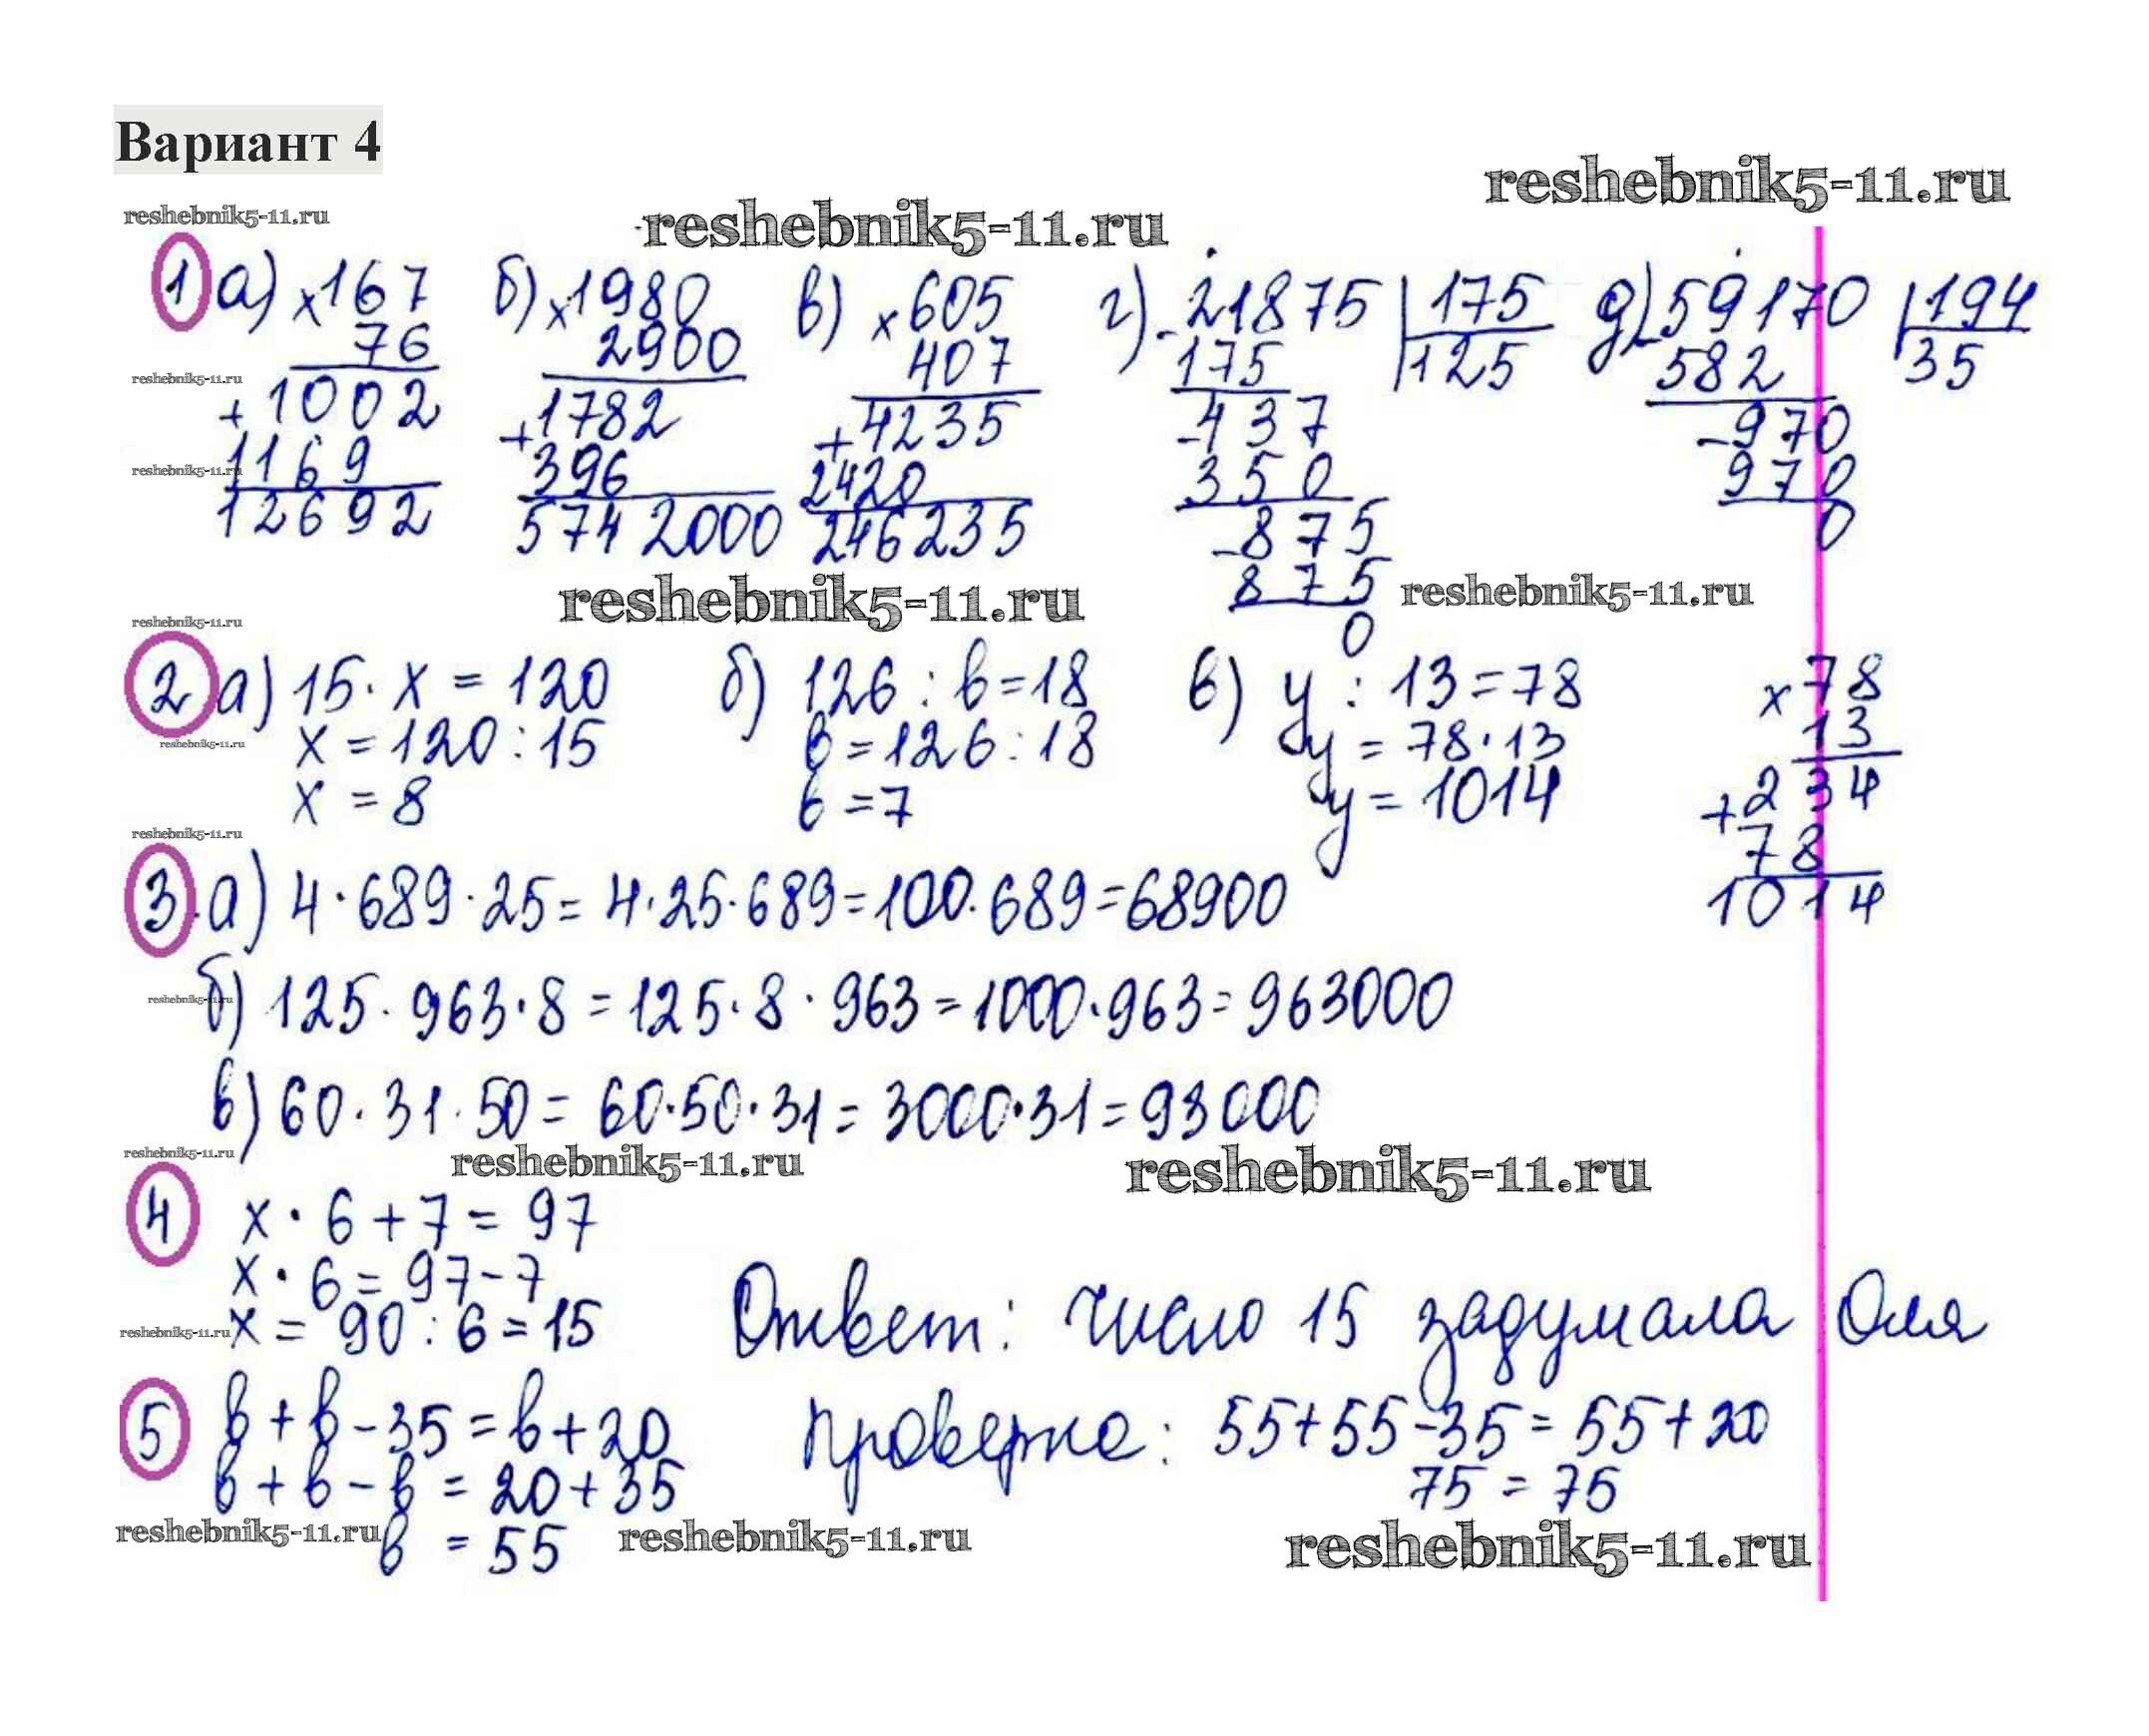 Вариант 4
reshebnik5-11.ru
reshebnik5-11.ru
reshebnik5-11.ru
1 а) x167 б) x1980 в) x605 г) 21875 | 175 д) 59170 | 194
76 2900 407 - 175 125 - 582 35
reshebnik5-11.ru
+1002 +1782 +4235 -437 -970
reshebnik5-11.ru
1169 396 2420 350 970
12692 5742000 246235 -875 0
reshebnik5-11.ru 875 reshebnik5-11.ru
0
reshebnik5-11.ru
2 а) 15· x = 120 б) 126 : в=18 в) у : 13=78 x78
x = 120:15 в=126:18 у = 78·13 13
reshebnik5-11.ru
x = 8 в =7 у = 1014 +234
reshebnik5-11.ru
78
1014
3 а) 4·689·25= 4·25·689=100·689=68900
reshebnik5-11.ru
б) 125· 963·8 = 125·8·963=1000·963=963000
в) 60·31·50= 60·50·31= 3000·31=93000
reshebnik5-11.ru
reshebnik5-11.ru
reshebnik5-11.ru
4 x·6+7= 97
x·6= 97-7
reshebnik5-11.ru
x= 90:6=15 Ответ: число 15 задумала Оля
5 в+в-35=в+20 проверка: 55+55-35= 55+20
в+в-в = 20+35 75 = 75
reshebnik5-11.ru
в = 55
reshebnik5-11.ru
reshebnik5-11.ru